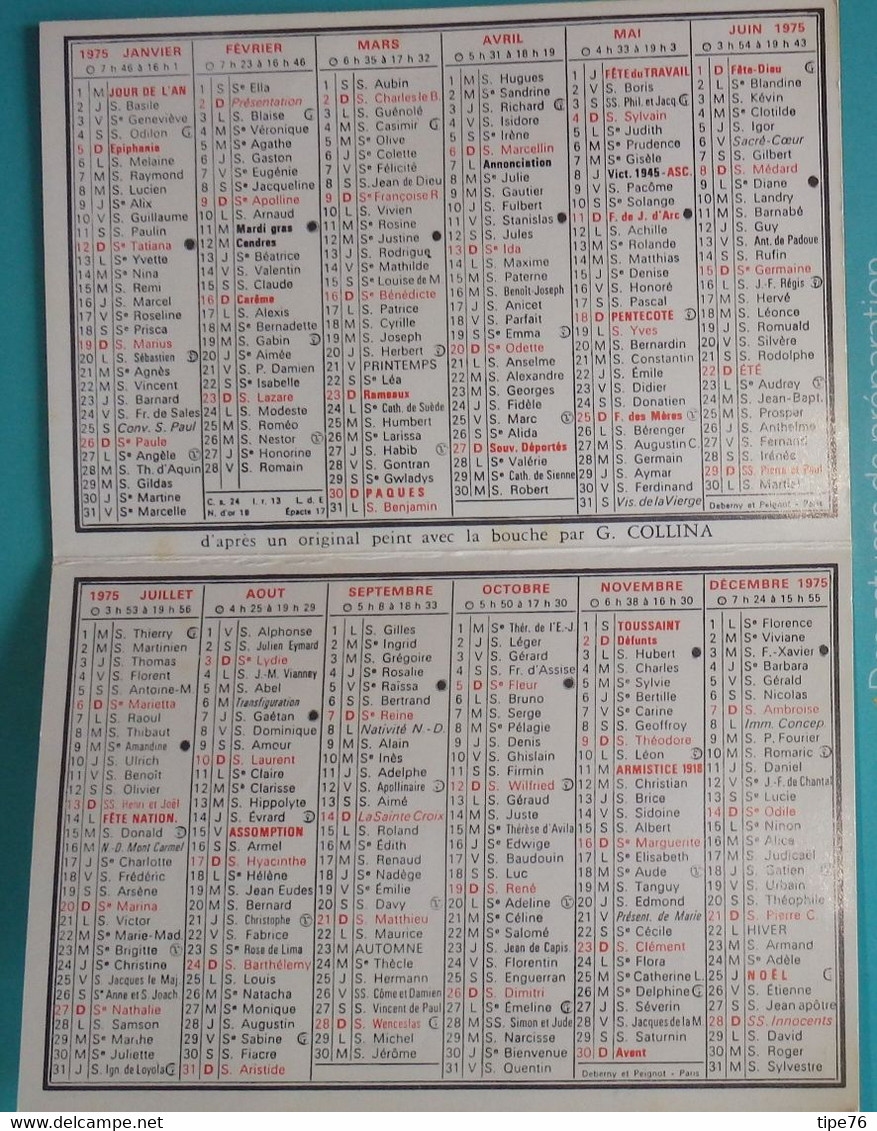 1975 JANVIER
7 h 46 à 16 h 1
1 M JOUR DE L'AN
2 J S. Basile
3 V Sᵉ Geneviève
4 S S. Odilon
5 D Epiphanie
6 L S. Melaine
7 M S. Raymond
8 M S. Lucien
9 J S. Alix
10 V S. Guillaume
11 S S. Paulin
12 D Sᵉ Tatiana
13 L Sᵉ Yvette
14 M Sᵉ Nina
15 M S. Remi
16 J S. Marcel
17 V Sᵉ Roseline
18 S Sᵉ Prisca
19 D S. Marius
20 L S. Sébastien
21 M Sᵉ Agnès
22 M S. Vincent
23 J S. Barnard
24 V S. Fr. de Sales
25 S Conv. S. Paul
26 D Sᵉ Paule
27 L Sᵉ Angèle
28 M S. Th. d'Aquin
29 M S. Gildas
30 J Sᵉ Martine
31 V Sᵉ Marcelle
FÉVRIER
7 h 23 à 16 h 46
1 S Sᵉ Ella
2 D Présentation
3 L S. Blaise
4 M Sᵉ Véronique
5 M Sᵉ Agathe
6 J S. Gaston
7 V Sᵉ Eugénie
8 S Sᵉ Jacqueline
9 D Sᵉ Apolline
10 L S. Arnaud
11 M Mardi gras
12 M Cendres
13 J Sᵉ Béatrice
14 V S. Valentin
15 S S. Claude
16 D Carême
17 L S. Alexis
18 M Sᵉ Bernadette
19 M S. Gabin
20 J Sᵉ Aimée
21 V S. P. Damien
22 S Sᵉ Isabelle
23 D S. Lazare
24 L S. Modeste
25 M S. Roméo
26 M S. Nestor
27 J Sᵉ Honorine
28 V S. Romain
C. s. 24 I. r. 13 L. d. E
N. d'or 19 Épacte 17
MARS
6 h 35 à 17 h 32
1 S S. Aubin
2 D S. Charles le B.
3 L S. Guénolé
4 M S. Casimir
5 M Sᵉ Olive
6 J Sᵉ Colette
7 V Sᵉ Félicité
8 S S. Jean de Dieu
9 D Sᵉ Françoise R.
10 L S. Vivien
11 M Sᵉ Rosine
12 M Sᵉ Justine
13 J S. Rodrigue
14 V Sᵉ Mathilde
15 S Sᵉ Louise de M.
16 D Sᵉ Bénédicte
17 L S. Patrice
18 M S. Cyrille
19 M S. Joseph
20 J S. Herbert
21 V PRINTEMPS
22 S Sᵉ Léa
23 D Rameaux
24 L Sᵉ Cath. de Suède
25 M S. Humbert
26 M Sᵉ Larissa
27 J S. Habib
28 V S. Gontran
29 S Sᵉ Gwladys
30 D PAQUES
31 L S. Benjamin
AVRIL
5 h 31 à 18 h 19
1 M S. Hugues
2 M Sᵉ Sandrine
3 J S. Richard
4 V S. Isidore
5 S Sᵉ Irène
6 D S. Marcellin
7 L Annonciation
8 M Sᵉ Julie
9 M S. Gautier
10 J S. Fulbert
11 V S. Stanislas
12 S S. Jules
13 D Sᵉ Ida
14 L S. Maxime
15 M S. Paterne
16 M S. Benoît-Joseph
17 J S. Anicet
18 V S. Parfait
19 S Sᵉ Emma
20 D Sᵉ Odette
21 L S. Anselme
22 M S. Alexandre
23 M S. Georges
24 J S. Fidèle
25 V S. Marc
26 S Sᵉ Alida
27 D Souv. Déportés
28 L Sᵉ Valérie
29 M Sᵉ Cath. de Sienne
30 M S. Robert
MAI
4 h 33 à 19 h 3
1 J FÊTE du TRAVAIL
2 V S. Boris
3 S SS. Phil. et Jacq
4 D S. Sylvain
5 L Sᵉ Judith
6 M Sᵉ Prudence
7 M Sᵉ Gisèle
8 J Vict. 1945 - ASC.
9 V S. Pacôme
10 S Sᵉ Solange
11 D F. de J. d'Arc
12 L S. Achille
13 M Sᵉ Rolande
14 M S. Matthias
15 J Sᵉ Denise
16 V S. Honoré
17 S S. Pascal
18 D PENTECOTE
19 L S. Yves
20 M S. Bernardin
21 M S. Constantin
22 J S. Émile
23 V S. Didier
24 S S. Donatien
25 D F. des Mères
26 L S. Bérenger
27 M S. Augustin C.
28 M S. Germain
29 J S. Aymar
30 V S. Ferdinand
31 S Vis. de la Vierge
JUIN 1975
3 h 54 à 19 h 43
1 D Fête-Dieu
2 L Sᵉ Blandine
3 M S. Kévin
4 M Sᵉ Clotilde
5 J S. Igor
6 V Sacré-Cœur
7 S S. Gilbert
8 D S. Médard
9 L Sᵉ Diane
10 M S. Landry
11 M S. Barnabé
12 J S. Guy
13 V S. Ant. de Padoue
14 S S. Rufin
15 D Sᵉ Germaine
16 L S. J.-F. Régis
17 M S. Hervé
18 M S. Léonce
19 J S. Romuald
20 V S. Silvère
21 S S. Rodolphe
22 D ÉTÉ
23 L Sᵉ Audrey
24 M S. Jean-Bapt.
25 M S. Prosper
26 J S. Anthelme
27 V S. Fernand
28 S S. Irénée
29 D SS. Pierre et Paul
30 L S. Martial
Deberny et Peignot - Paris
d'après un original peint avec la bouche par G. COLLINA
1975 JUILLET
3 h 53 à 19 h 56
1 M S. Thierry
2 M S. Martinien
3 J S. Thomas
4 V S. Florent
5 S S. Antoine-M.
6 D Sᵉ Marietta
7 L S. Raoul
8 M S. Thibaut
9 M Sᵉ Amandine
10 J S. Ulrich
11 V S. Benoît
12 S S. Olivier
13 D SS. Henri et Joël
14 L FÊTE NATION.
15 M S. Donald
16 M N.-D. Mont Carmel
17 J Sᵉ Charlotte
18 V S. Frédéric
19 S S. Arsène
20 D Sᵉ Marina
21 L S. Victor
22 M Sᵉ Marie-Mad.
23 M Sᵉ Brigitte
24 J Sᵉ Christine
25 V S. Jacques le Maj.
26 S Sᵉ Anne et S. Joach.
27 D Sᵉ Nathalie
28 L S. Samson
29 M Sᵉ Marthe
30 M Sᵉ Juliette
31 J S. Ign. de Loyola
AOUT
4 h 25 à 19 h 29
1 V S. Alphonse
2 S S. Julien Eymard
3 D Sᵉ Lydie
4 L S. J.-M. Vianney
5 M S. Abel
6 M Transfiguration
7 J S. Gaétan
8 V S. Dominique
9 S S. Amour
10 D S. Laurent
11 L Sᵉ Claire
12 M Sᵉ Clarisse
13 M S. Hippolyte
14 J S. Évrard
15 V ASSOMPTION
16 S S. Armel
17 D S. Hyacinthe
18 L Sᵉ Hélène
19 M S. Jean Eudes
20 M S. Bernard
21 J S. Christophe
22 V S. Fabrice
23 S Sᵉ Rose de Lima
24 D S. Barthélemy
25 L S. Louis
26 M Sᵉ Natacha
27 M Sᵉ Monique
28 J S. Augustin
29 V Sᵉ Sabine
30 S S. Fiacre
31 D S. Aristide
SEPTEMBRE
5 h 8 à 18 h 33
1 L S. Gilles
2 M Sᵉ Ingrid
3 M S. Grégoire
4 J Sᵉ Rosalie
5 V Sᵉ Raïssa
6 S S. Bertrand
7 D Sᵉ Reine
8 L Nativité N.-D.
9 M S. Alain
10 M Sᵉ Inès
11 J S. Adelphe
12 V S. Apollinaire
13 S S. Aimé
14 D La Sainte Croix
15 L S. Roland
16 M Sᵉ Édith
17 M S. Renaud
18 J Sᵉ Nadège
19 V Sᵉ Émilie
20 S S. Davy
21 D S. Matthieu
22 L S. Maurice
23 M AUTOMNE
24 M Sᵉ Thècle
25 J S. Hermann
26 V SS. Côme et Damien
27 S S. Vincent de Paul
28 D S. Wenceslas
29 L S. Michel
30 M S. Jérôme
OCTOBRE
5 h 50 à 17 h 30
1 M Sᵉ Thér. de l'E.-J.
2 J S. Léger
3 V S. Gérard
4 S S. Fr. d'Assise
5 D Sᵉ Fleur
6 L S. Bruno
7 M S. Serge
8 M Sᵉ Pélagie
9 J S. Denis
10 V S. Ghislain
11 S S. Firmin
12 D S. Wilfried
13 L S. Géraud
14 M S. Juste
15 M Sᵉ Thérèse d'Avila
16 J Sᵉ Edwige
17 V S. Baudouin
18 S S. Luc
19 D S. René
20 L Sᵉ Adeline
21 M Sᵉ Céline
22 M Sᵉ Salomé
23 J S. Jean de Capis.
24 V S. Florentin
25 S S. Enguerran
26 D S. Dimitri
27 L Sᵉ Émeline
28 M SS. Simon et Jude
29 M S. Narcisse
30 J Sᵉ Bienvenue
31 V S. Quentin
NOVEMBRE
6 h 38 à 16 h 30
1 S TOUSSAINT
2 D Défunts
3 L S. Hubert
4 M S. Charles
5 M Sᵉ Sylvie
6 J Sᵉ Bertille
7 V Sᵉ Carine
8 S S. Geoffroy
9 D S. Théodore
10 L S. Léon
11 M ARMISTICE 1918
12 M S. Christian
13 J S. Brice
14 V S. Sidoine
15 S S. Albert
16 D Sᵉ Marguerite
17 L Sᵉ Elisabeth
18 M Sᵉ Aude
19 M S. Tanguy
20 J S. Edmond
21 V Présent. de Marie
22 S Sᵉ Cécile
23 D S. Clément
24 L Sᵉ Flora
25 M Sᵉ Catherine L.
26 M Sᵉ Delphine
27 J S. Séverin
28 V S. Jacques de la M.
29 S S. Saturnin
30 D Avent
Deberny et Peignot - Paris
DÉCEMBRE 1975
7 h 24 à 15 h 55
1 L Sᵉ Florence
2 M Sᵉ Viviane
3 M S. F.-Xavier
4 J Sᵉ Barbara
5 V S. Gérald
6 S S. Nicolas
7 D S. Ambroise
8 L Imm. Concep.
9 M S. P. Fourier
10 M S. Romaric
11 J S. Daniel
12 V Sᵉ J.-F. de Chantal
13 S Sᵉ Lucie
14 D Sᵉ Odile
15 L Sᵉ Ninon
16 M Sᵉ Alice
17 M S. Judicaël
18 J S. Gatien
19 V S. Urbain
20 S S. Théophile
21 D S. Pierre C.
22 L HIVER
23 M S. Armand
24 M Sᵉ Adèle
25 J NOËL
26 V S. Étienne
27 S S. Jean apôtre
28 D SS. Innocents
29 L S. David
30 M S. Roger
31 M S. Sylvestre
de préparation
tipe76